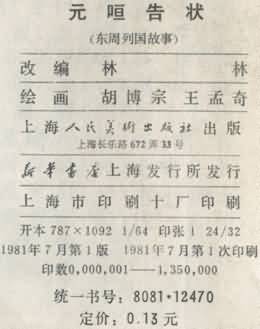 元咺告状
(东周列国故事)
改编 林 林
绘画 胡博宗 王孟奇
上海人民美术出版社出版
上海长乐路672弄33号
新华书店上海发行所发行
上海市印刷十厂印刷
开本787×1092 1/64 印张1 24/32
1981年7月第1版 1981年7月第1次印刷
印数0,000,001——1,350,000
统一书号:8081·12470
定价:0.13元